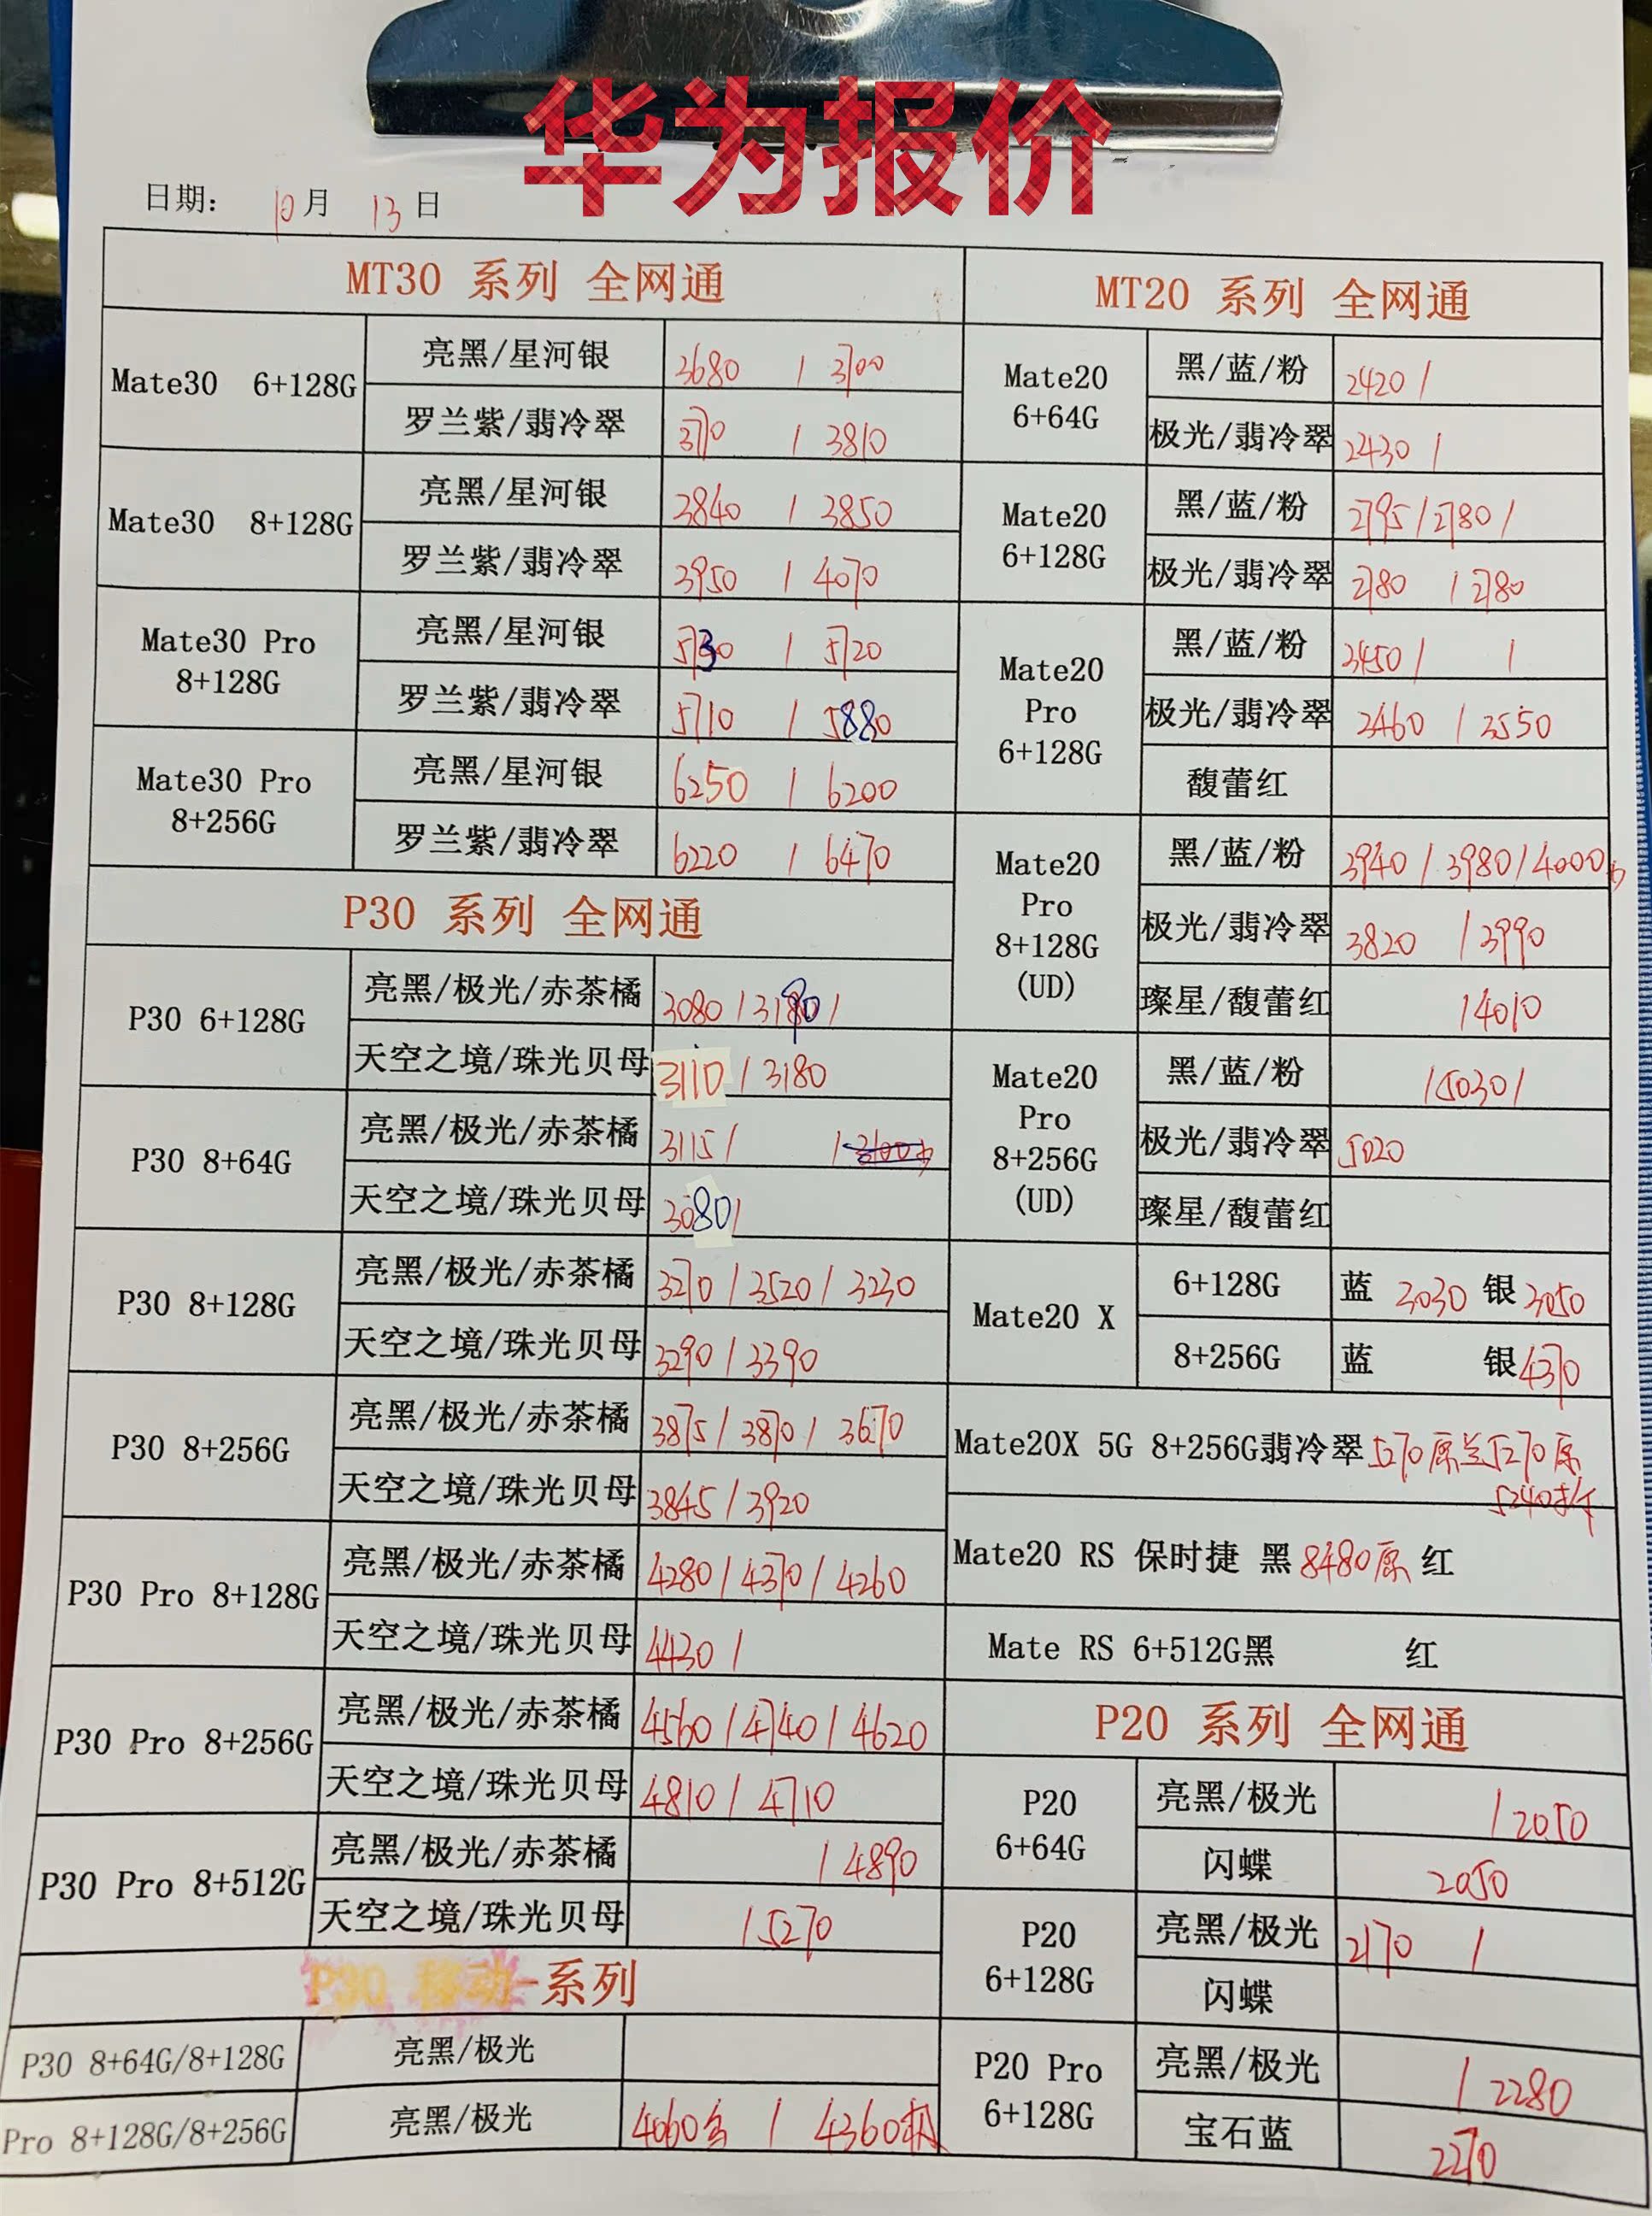 华为报价
日期: 10月 13日
MT30 系列 全网通
Mate30 6+128G
亮黑/星河银 3680 / 3700
罗兰紫/翡冷翠 3710 / 3810
Mate30 8+128G
亮黑/星河银 3840 / 3850
罗兰紫/翡冷翠 3950 / 4070
Mate30 Pro
8+128G
亮黑/星河银 5730 / 5720
罗兰紫/翡冷翠 5710 / 5880
Mate30 Pro
8+256G
亮黑/星河银 6250 / 6200
罗兰紫/翡冷翠 6220 / 6470
P30 系列 全网通
P30 6+128G
亮黑/极光/赤茶橘 3080 / 3190 /
天空之境/珠光贝母 3110 / 3180
P30 8+64G
亮黑/极光/赤茶橘 3115 / /
天空之境/珠光贝母 3080 /
P30 8+128G
亮黑/极光/赤茶橘 3270 / 3520 / 3230
天空之境/珠光贝母 3290 / 3390
P30 8+256G
亮黑/极光/赤茶橘 3875 / 3870 / 3670
天空之境/珠光贝母 3845 / 3920
P30 Pro 8+128G
亮黑/极光/赤茶橘 4280 / 4370 / 4260
天空之境/珠光贝母 4430 /
P30 Pro 8+256G
亮黑/极光/赤茶橘 4560 / 4740 / 4620
天空之境/珠光贝母 4810 / 4710
P30 Pro 8+512G
亮黑/极光/赤茶橘 / 4890
天空之境/珠光贝母 / 5270
P30 移动-系列
P30 8+64G/8+128G
亮黑/极光
Pro 8+128G/8+256G
亮黑/极光 4060 / 4360
MT20 系列 全网通
Mate20
6+64G
黑/蓝/粉 2420 /
极光/翡冷翠 2430 /
Mate20
6+128G
黑/蓝/粉 2795 / 2780 /
极光/翡冷翠 2780 / 2780
Mate20
Pro
6+128G
黑/蓝/粉 3450 / /
极光/翡冷翠 3460 / 3550
馥蕾红
Mate20
Pro
8+128G
(UD)
黑/蓝/粉 3940 / 3980 / 4000
极光/翡冷翠 3820 / 3990
璨星/馥蕾红 / 4010
Mate20
Pro
8+256G
(UD)
黑/蓝/粉 / 5030 /
极光/翡冷翠 5020
璨星/馥蕾红
Mate20 X
6+128G 蓝 3030 银 3050
8+256G 蓝 银 4370
Mate20X 5G 8+256G翡冷翠 5270原 5270原
5240
Mate20 RS 保时捷 黑 8480原 红
Mate RS 6+512G黑 红
P20 系列 全网通
P20
6+64G
亮黑/极光 / 2050
闪蝶 2050
P20
6+128G
亮黑/极光 2170 /
闪蝶
P20 Pro
6+128G
亮黑/极光 / 2280
宝石蓝 2270